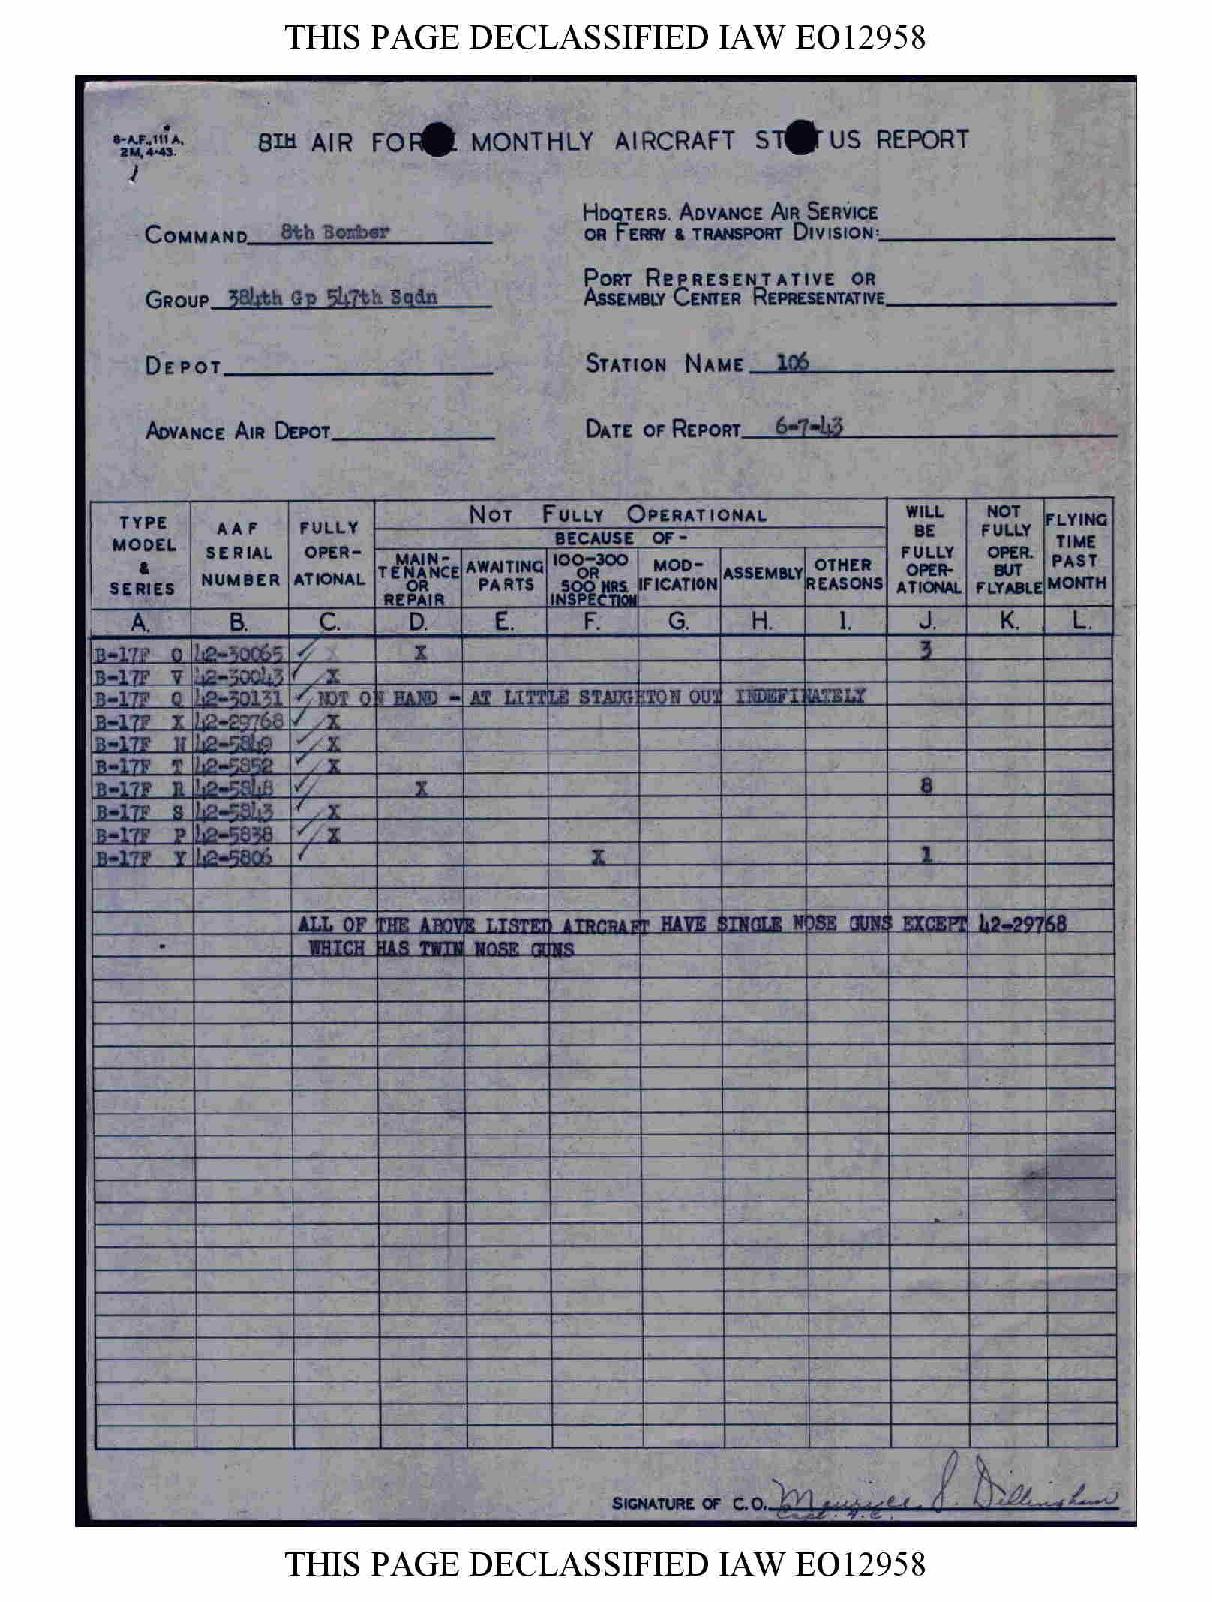 THIS PAGE DECLASSIFIED IAW EO12958
8-A.F.,111A.
2M,4-43.
8TH AIR FOR MONTHLY AIRCRAFT ST US REPORT
COMMAND 8th Bomber
HDQTERS. ADVANCE AIR SERVICE
OR FERRY & TRANSPORT DIVISION:
GROUP 384th Gp 547th Sqdn
PORT REPRESENTATIVE OR
ASSEMBLY CENTER REPRESENTATIVE
DEPOT
STATION NAME 106
ADVANCE AIR DEPOT
DATE OF REPORT 6-7-43
TYPE MODEL & SERIES
AAF SERIAL NUMBER
FULLY OPER-ATIONAL
NOT FULLY OPERATIONAL
BECAUSE OF-
MAIN-TENANCE OR REPAIR
AWAITING PARTS
100-300 OR 500 HRS. INSPECTION
MOD-IFICATION
ASSEMBLY
OTHER REASONS
WILL BE FULLY OPER-ATIONAL
NOT FULLY OPER. BUT FLYABLE
FLYING TIME PAST MONTH
A. B. C. D. E. F. G. H. I. J. K. L.
B-17F O 42-30065 ✓ X 3
B-17F V 42-30043 ✓ X
B-17F Q 42-30131 ✓ NOT ON HAND - AT LITTLE STAUGHTON OUT INDEFINATELY
B-17F X 42-29768 ✓ X
B-17F N 42-5849 ✓ X
B-17F T 42-5852 ✓ X
B-17F R 42-5848 ✓ X 8
B-17F S 42-5843 ✓ X
B-17F P 42-5838 ✓ X
B-17F Y 42-5806 ✓ X 1
ALL OF THE ABOVE LISTED AIRCRAFT HAVE SINGLE NOSE GUNS EXCEPT 42-29768
WHICH HAS TWIN NOSE GUNS
SIGNATURE OF C.O. Maurice S. Dillingham
Capt. A.C.
THIS PAGE DECLASSIFIED IAW EO12958